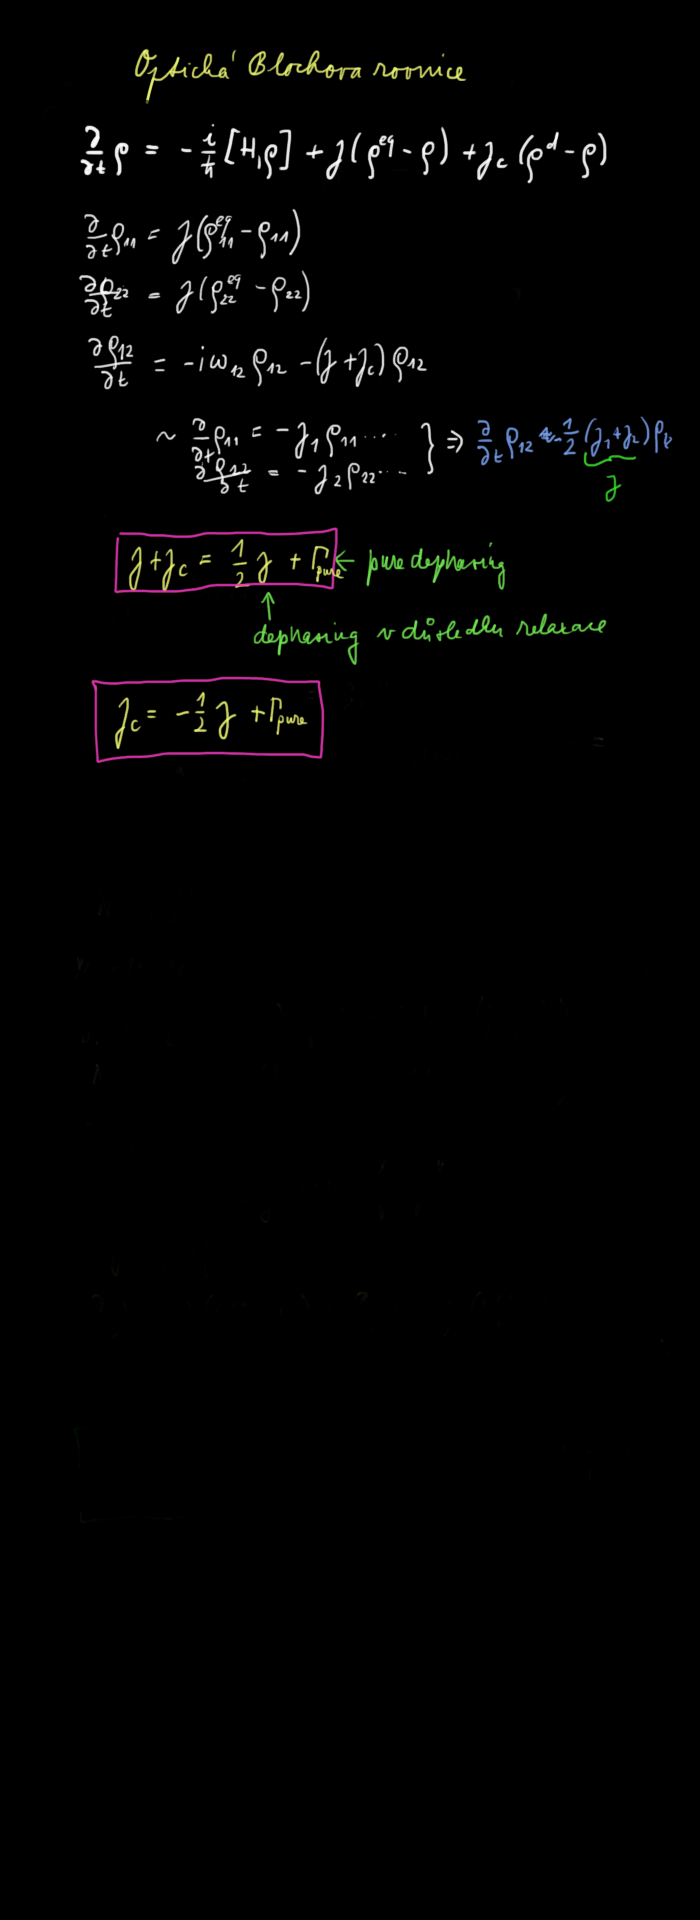 Optická Blochova rovnice
∂/∂t ρ = - i/ħ [H,ρ] + γ(ρ^eq - ρ) + γ_c (ρ^d - ρ)
∂/∂t ρ_11 = γ(ρ_11^eq - ρ_11)
∂ρ_22/∂t = γ(ρ_22^eq - ρ_22)
∂ρ_12/∂t = -iω_12 ρ_12 - (γ+γ_c) ρ_12
~ ∂/∂t ρ_11 = -γ_1 ρ_11 .... } ⇒ ∂/∂t ρ_12 ~ -1/2 (γ_1+γ_2) ρ_12
∂ρ_22/∂t = -γ_2 ρ_22 ...
γ
γ+γ_c = 1/2 γ + Γ_pure ← pure dephasing
↑
dephasing v důsledku relaxace
γ_c = -1/2 γ + Γ_pure